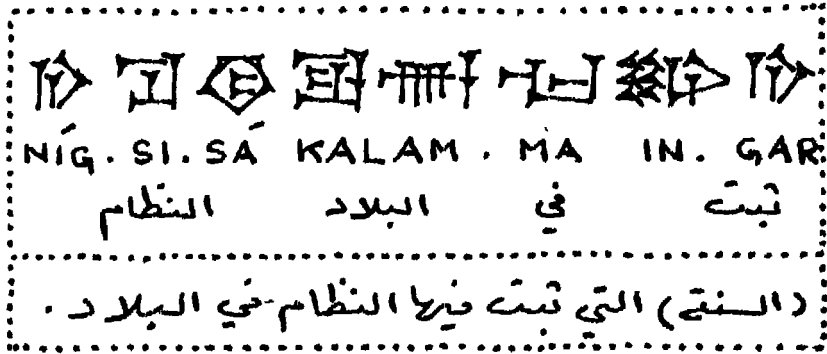 NÍG . SI . SÁ KALAM . MA IN . GAR
ثبت في البلاد النظام
(السنة) التي ثبت فيها النظام في البلاد .